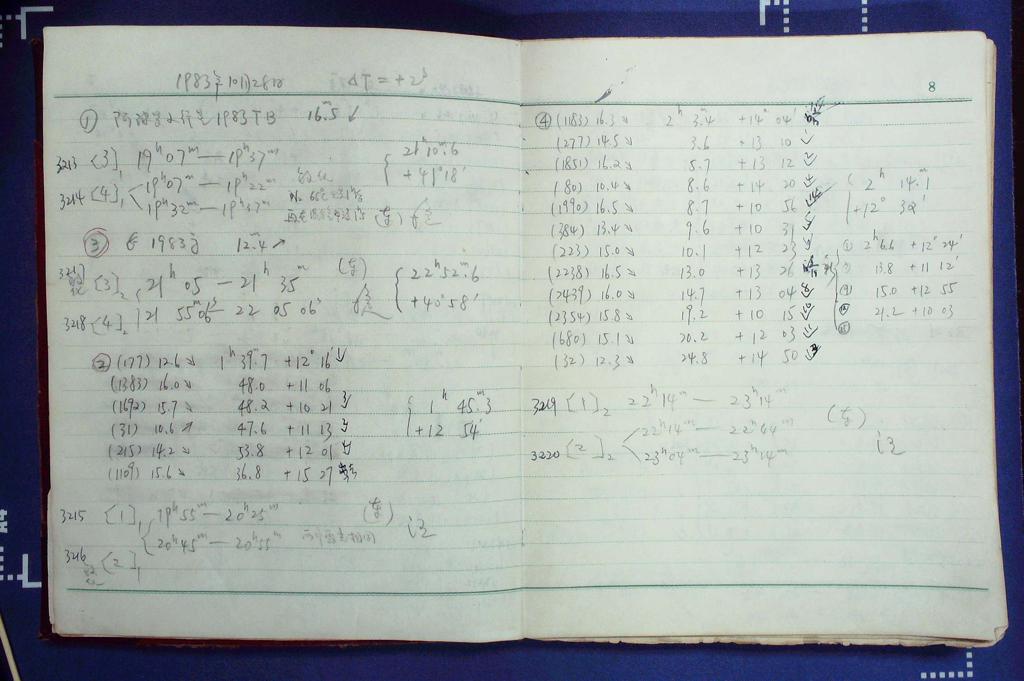 1983年10月28日 ΔT=+2ˢ
① 1983TB 16ᵐ.5 ↙
3213 [3]₁ 19ʰ07ᵐ—19ʰ37ᵐ
{ 21ʰ10ᵐ.6
+41°18′
3214 [4]₁ 19ʰ07ᵐ—19ʰ22ᵐ
19ʰ32ᵐ—19ʰ37ᵐ
③ 1983 12ᵐ.4 ↗
3217 [3]₂ 21ʰ05—21ʰ35ᵐ
{ 22ʰ52ᵐ.6
+40°58′
3218 [4]₂ 22 05 06ˢ
② (177) 12.6↘ 1ʰ39ᵐ.7 +12°16′
(1383) 16.0↘ 48.0 +11 06
(1692) 15.7↘ 48.2 +10 21
(31) 10.6↗ 47.6 +11 13
(215) 14.2↘ 53.8 +12 01
(1109) 15.6↘ 36.8 +15 27
{ 1ʰ45ᵐ.3
+12 54′
3215 [1]₁ 19ʰ55ᵐ—20ʰ25ᵐ (东) 注
20ʰ45ᵐ—20ʰ55ᵐ
3216 [2]₁
8
④ (1183) 16.3↘ 2ʰ3ᵐ.4 +14°04′
(277) 14.5↘ 3.6 +13 10
(1851) 16.2↘ 5.7 +13 12
(80) 10.4↘ 8.6 +14 20
(1990) 16.5↘ 8.7 +10 56
(384) 13.4↘ 9.6 +10 31
(223) 15.0↘ 10.1 +12 23
(2238) 16.5↘ 13.0 +13 26
(2439) 16.0↘ 14.7 +13 04
(2354) 15.8↘ 19.2 +10 15
(680) 15.1↘ 20.2 +12 03
(32) 12.3↘ 24.8 +14 50
{ 2ʰ14ᵐ.1
+12°32′
① 2ʰ6.6 +12°24′
13.8 +11 12′
15.0 +12 55
21.2 +10 03
3219 [1]₂ 22ʰ14ᵐ—23ʰ14ᵐ
3220 [2]₂ 22ʰ14ᵐ—22ʰ44ᵐ (东) 注
23ʰ04ᵐ—23ʰ14ᵐ